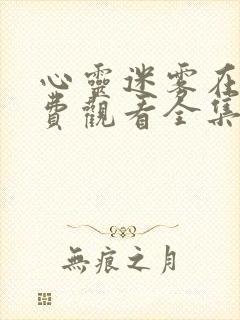 心靈迷雾在
費觀看全集
無痕之月